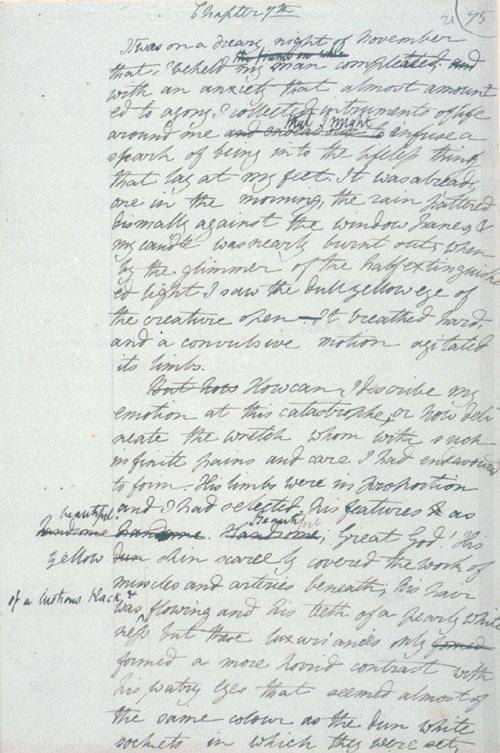 Chapter 7th
21
95
It was on a dreary night of November
the frame on whic
that I beheld my man compleated; and
with an anxiety that almost amount
ed to agony, I collected instruments of life
that I might
around me and infuse a
spark of being into the lifeless thing
that lay at my feet. It was already
one in the morning, the rain pattered
dismally against the window panes &
my candle was nearly burnt out, when
by the glimmer of the half extinguish
ed light I saw the dull yellow eye of
the creature open. It breathed hard,
and a convulsive motion agitated
its limbs.
But how How can I describe my
emotion at this catastrophe, or how deli
neate the wretch whom with such
infinite pains and care I had endeavoured
to form. His limbs were in proportion
and I had selected his features as
beautiful
handsome handsome. Beautiful
Handsome; Great God! His
yellow dun skin scarcely covered the work of
muscles and arteries beneath; his hair
of a lustrous black, &
was flowing and his teeth of a pearly white
ness but these luxuriances only formed
formed a more horrid contrast with
his watry eyes that seemed almost of
the same colour as the dun white
sockets in which they were set